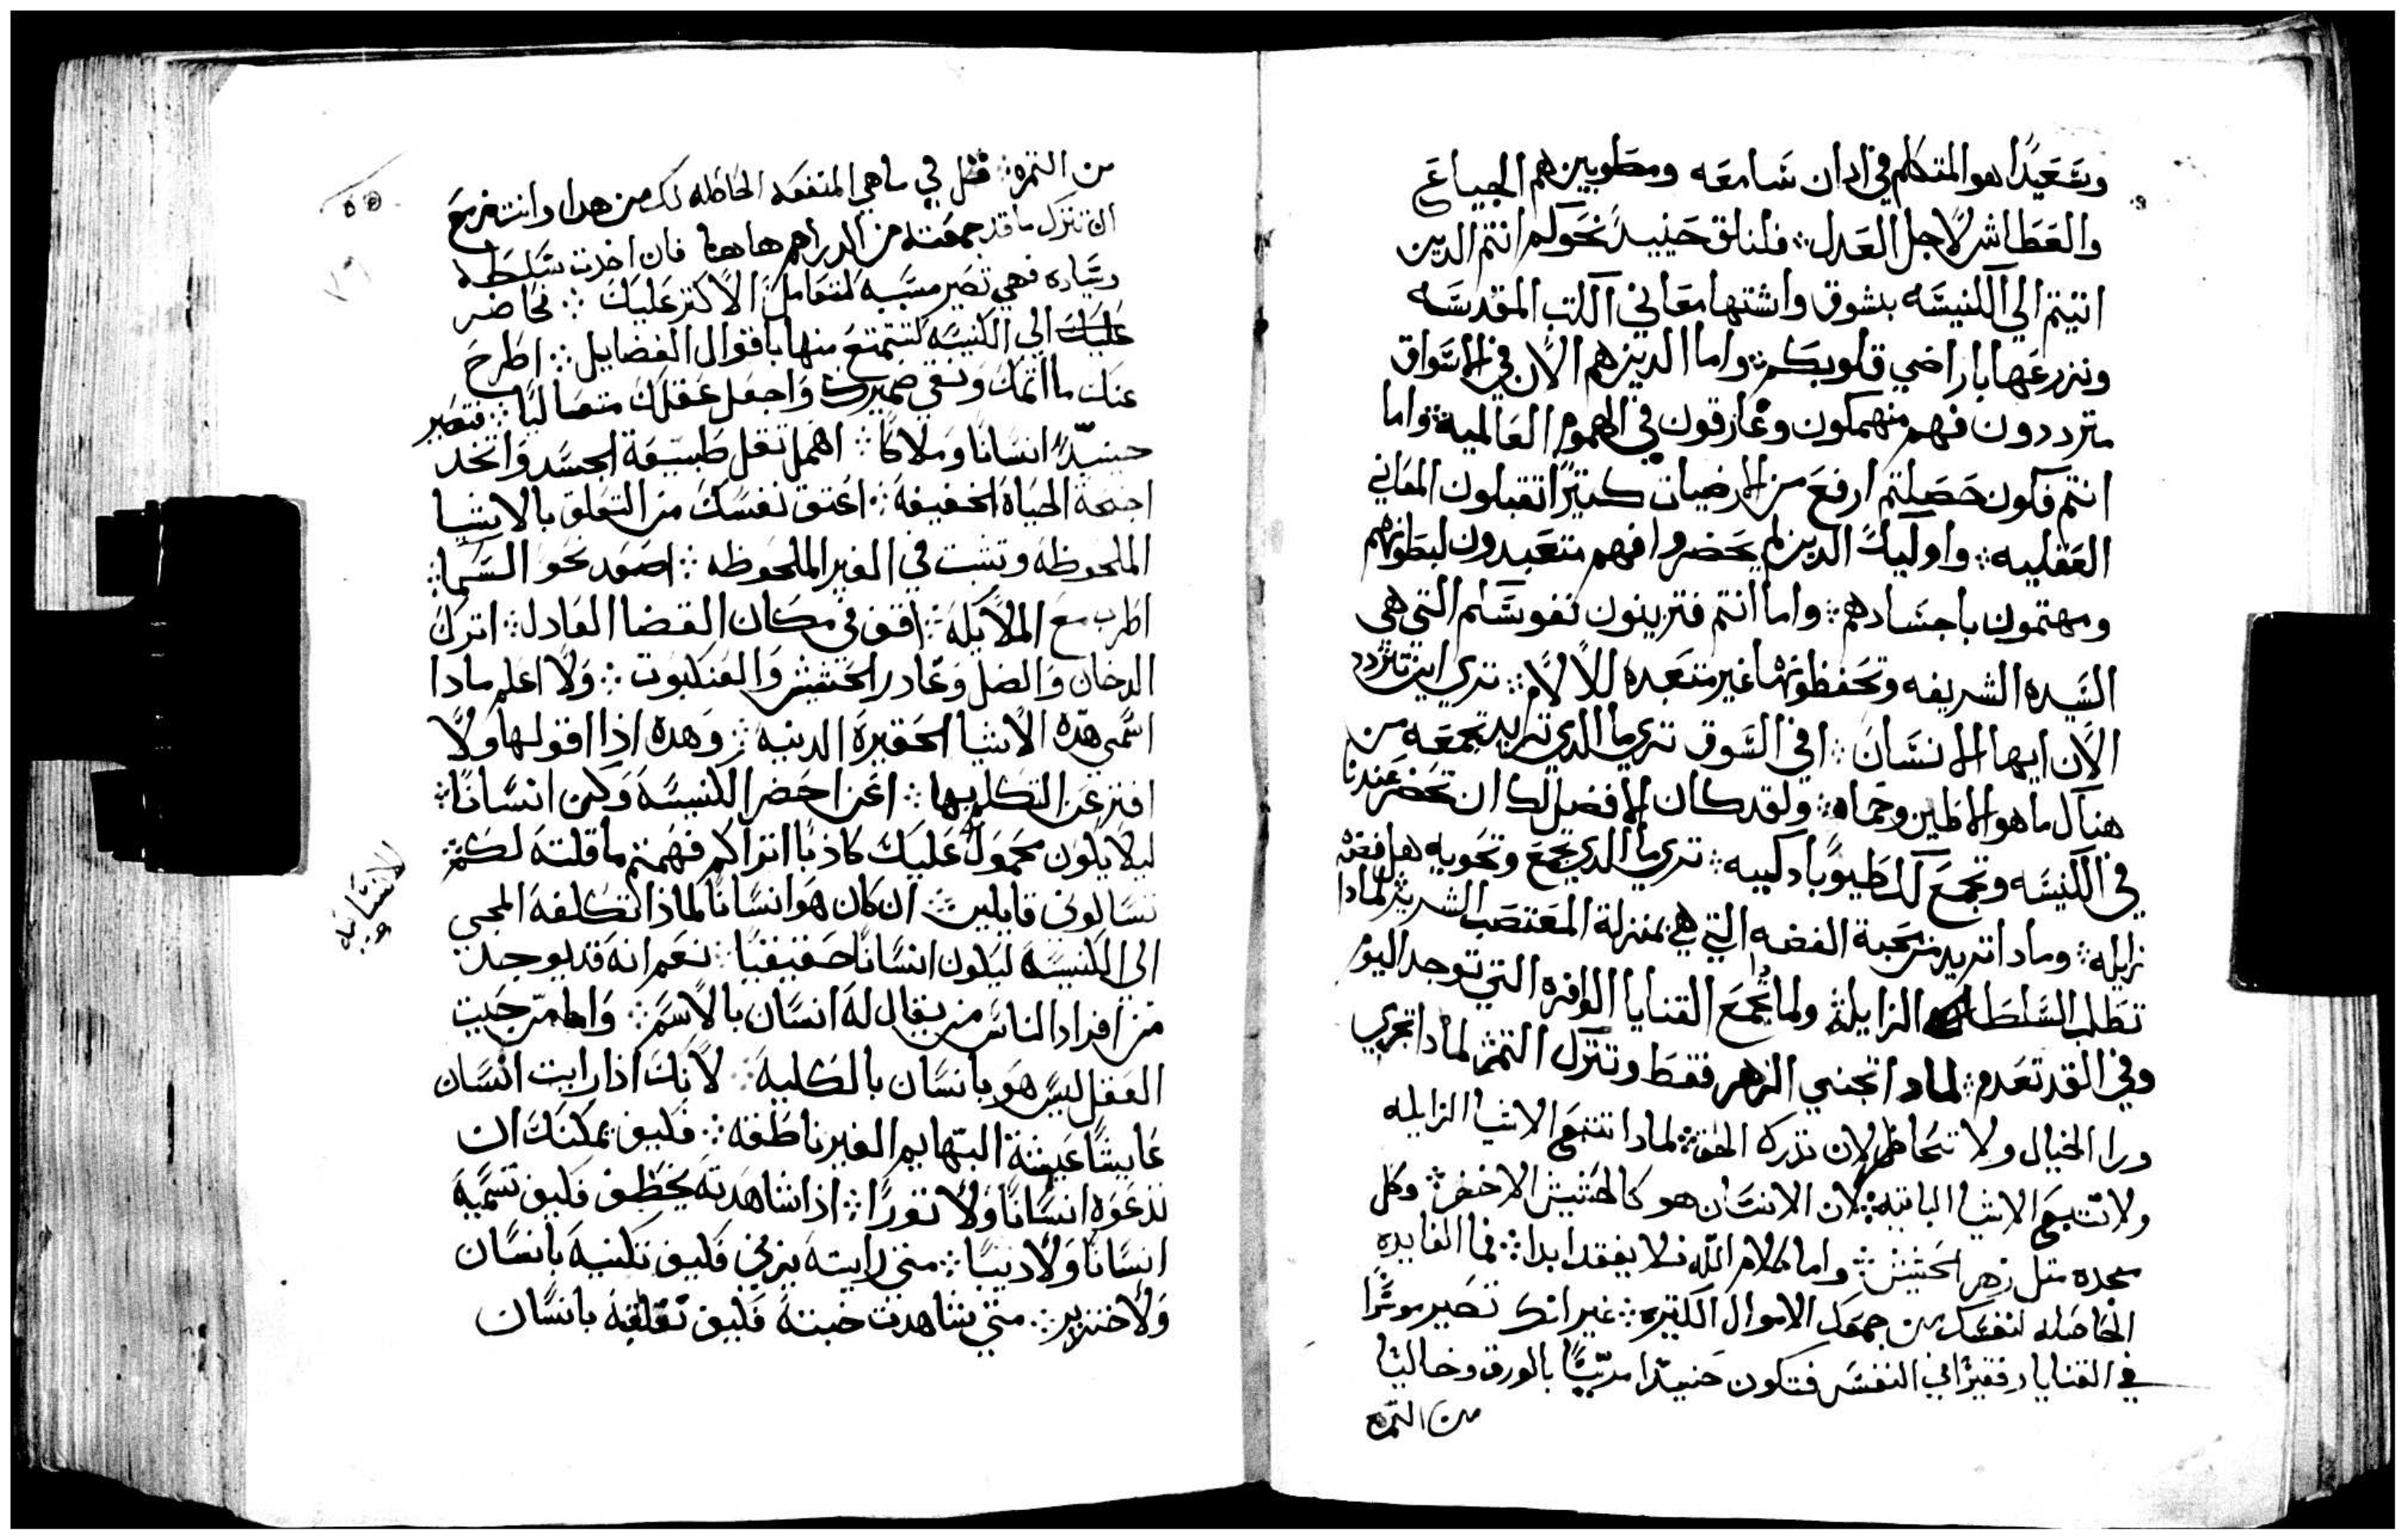 وسَعَيدًا هو المتكلم في ادان سَامعَه ومطَوبين هم الجيباعَ
والعَطَاش لاجل العَدل ܀ فلناق حَنييدً نحَوكم انتم الدين
اتيتم الي الكنيسَه بشوق واشتها معَاني الكتب المقدسَه
ونزرعَها باراضي قلوبكم ܀ واما الدين هم الان في الاسَواق
مترددون فهم منهمكون وغارقون في الهموم العَالميه ܀ واما
انتم فكون حَصَلتم ارفعَ من الارضيات كتيرًا تقبلون المعَاني
العَقليه ܀ واوليكَ الدين لم يحَضروا فهم متعَبدون لبطَونهم
ومهتمون باجسَادهم ܀ واما انتم فتزينون نفوسَكم التي هي
السَيده الشريفه وتحَفظونها غير متعَبده للالام ܀ تري اين تتردد
الان ايها الانسَان ܀ افي السَوق تري ما الدي تريد تجمعَه من
هناك ما هو الا طين وحَماه ܀ ولقد كان الافضل لك ان تحَضر عندنا
في الكنيسَه وتجمعَ لك طَيوبًا دكييه ܀ تري ما الدي تجمعَ وتحَويه هل فضه
زايله ܀ ومادا تريد من محَبة الفضه التي هي بمنزلة المغَتصَب الشرير لمادا
تطَلب السَلطَات الزايلة ܀ ولمادا تجمعَ القنايا الوافره التي توجد اليوم
وفي الغد تعَدم ܀ لمادا تجني الزهر فقطَ وتترك التمر لمادا تجري
ورا الخيال ولا تحَاظر لان تدرك الحق ܀ لمادا تتبعَ الاشيا الزايله
ولا تتبعَ الاشيا الباقيه ܀ لان الانسَان هو كالحَشيش الاخضر ܀ وكل
مجده متل زهر الحَشيش ܀ واما كلام الله فلا يفقد ابدا ܀ فما الفايده
الحَاصَله لنفسَك من جمعَك الاموال الكتيره ܀ غير انك تصَير موسَرًا
في القنايا وفقيرًا في النفسَ فتكون حَنييدًا مزيّنًا بالورق وخاليًا
من التمره
من التمره ܀ فقل لي ما هي المنفعَه الحَاصله لك من هدا وانت مزمعَ
ان تترك ما قد جمعَته من الدراهم هاهنا فان اخدت سَلطَه
وسَياده فهي تصَير مسَببه لمتعَاملَ الاكتر عَليكَ ܀ فحَاضر
عَليكَ الي الكنيسَه لتتمتعَ منها باقوال الفضايل ܀ اطَرحَ
عنك ما اتمكَ ونقي ضميركَ واجعَل عَقلكَ متعَاليًا ܀ فتصَير
حينيدًا انسَانًا وملاكًا ܀ اهمل تقل طَبيعَة الجسَد واتخد
اجنحَة الحَياة الخفيفة ܀ اعَتق نفسَكَ من التعَلق بالاشيا
الملحَوظه وتشبت في الغير الملحَوظه ܀ اصعَد نحَو السَما ܀
اطَرب معَ الملايكه ܀ اقف في مكان القضا العَادل ܀ اترك
الدخان والضل وغادر الحَشيش والعَنكبوت ܀ ولا اعَلم مادا
اسَمي هده الاشيا الحَقيرة الدنيه ܀ وهده ادا اقولها ولا
افتر عَن التكلم بها ܀ اعَني احَضر الكنيسَة وكن انسَانًا ܀
ليلا يكون محَمولً عَليكَ كادبًا اتراكم فهمتم ما قلته لكم ܀
تسَالوني قايلين ܀ ان كان هو انسَانًا لمادا تكلفه المجي
الى الكنيسَة ليكون انسَانًا حَقيقيًا ܀ نعَم انه قد يوجد
من افراد الناسَ من يقال له انسَان بالاسَم ܀ واما من حَيت
العَقل ليسَ هو بانسَان بالكلية ܀ لانكَ ادا رايت انسَان
عَايشًا عَيشة البهايم الغير ناطَقه ܀ فكيف يمكنكَ ان
تدعَوه انسَانًا ولا تورًا ܀ ادا شاهدته يخطَف فكيف تسَميه
انسَانًا ولا ديبًا ܀ متي رايته يزني فكيف تكنيه بانسَان
ولا خنزير ܀ متي شاهدت خبته فكيف تلقبه بانسَان
الانسَانيه